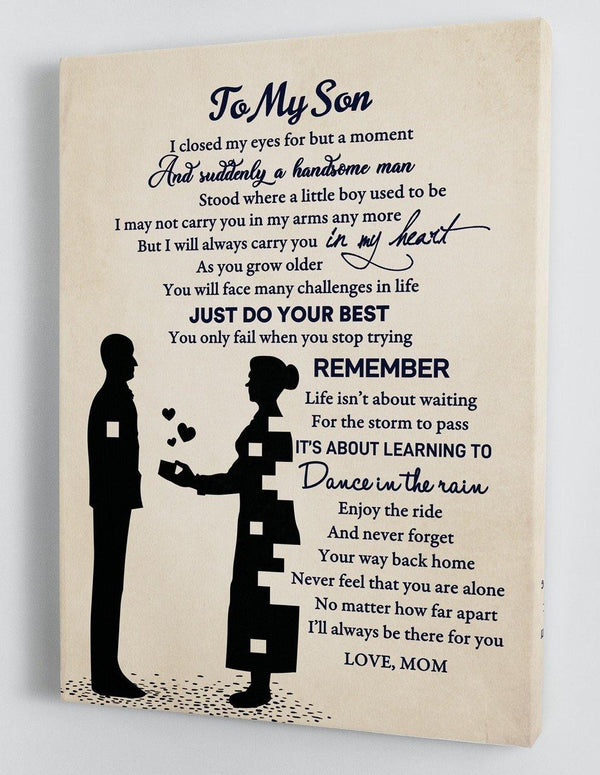 To My Son
I closed my eyes for but a moment
And suddenly a handsome man
Stood where a little boy used to be
I may not carry you in my arms any more
But I will always carry you in my heart
As you grow older
You will face many challenges in life
JUST DO YOUR BEST
You only fail when you stop trying
REMEMBER
Life isn't about waiting
For the storm to pass
IT'S ABOUT LEARNING TO
Dance in the rain
Enjoy the ride
And never forget
Your way back home
Never feel that you are alone
No matter how far apart
I'll always be there for you
LOVE, MOM